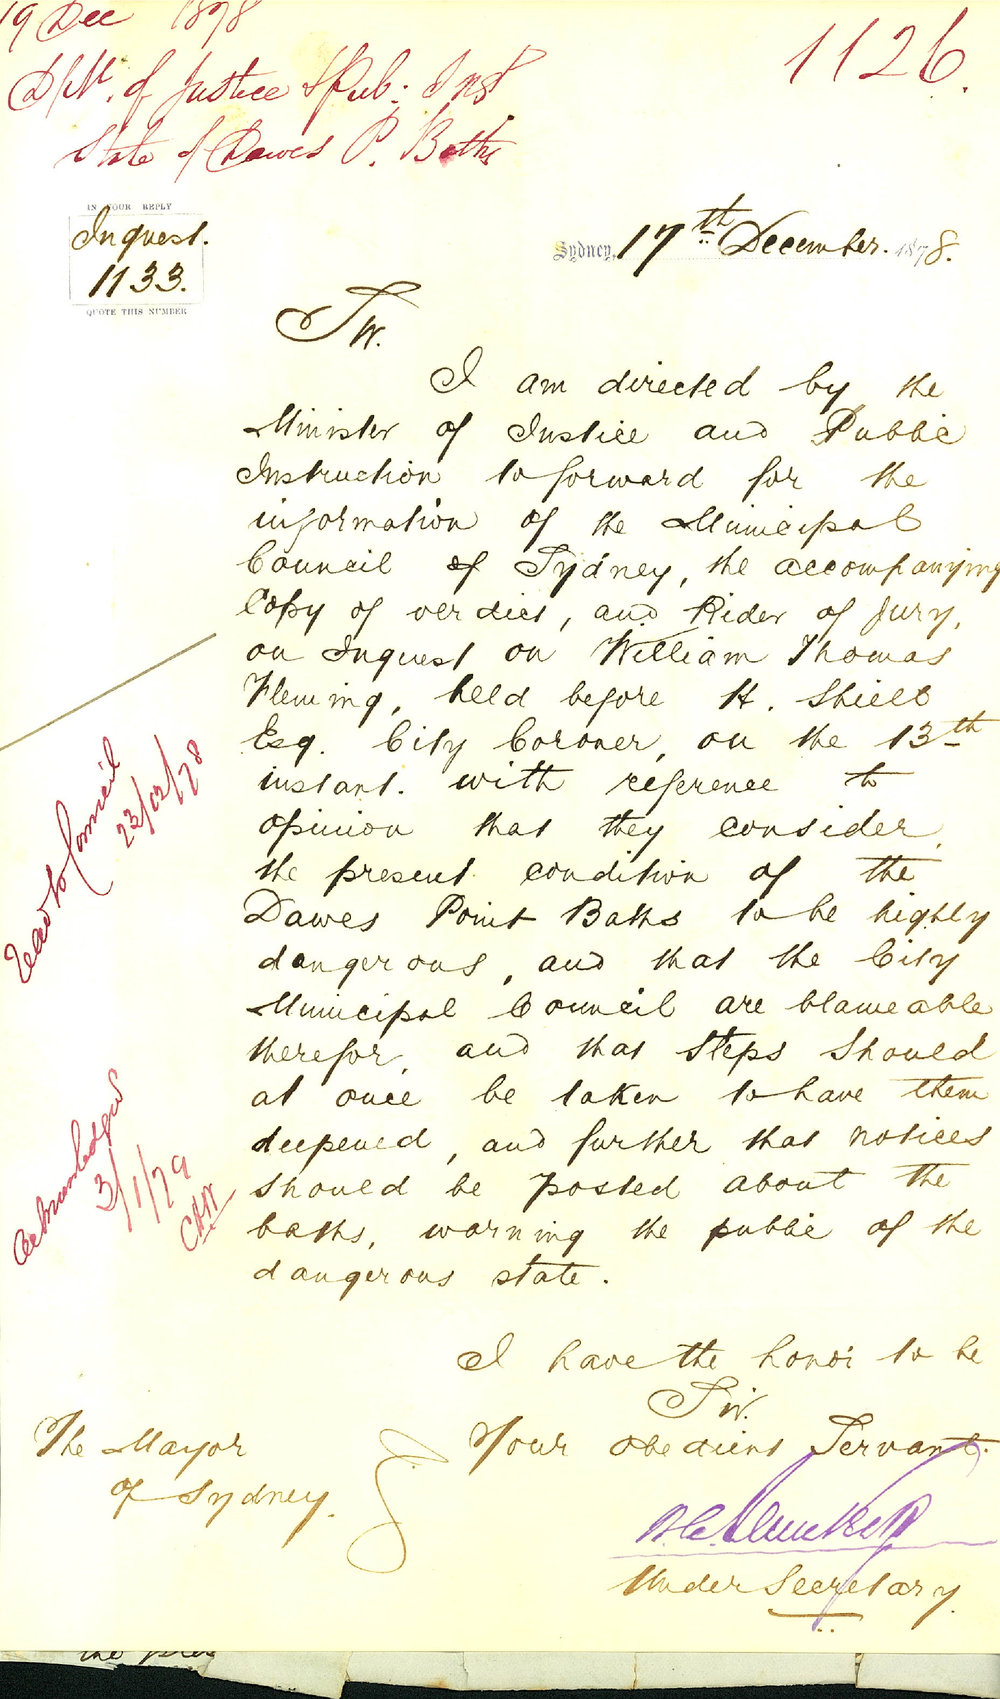 19 Dec 1878
1126.
of Justice & Pub: Inst
State of Dawes P. Baths
IN YOUR REPLY
Inquest.
1133.
QUOTE THIS NUMBER
Sydney, 17th December. 1878.
Sir.
I am directed by the
Minister of Justice and Public
Instruction to forward for the
information of the Municipal
Council of Sydney, the accompanying
Copy of verdict, and Rider of Jury,
on Inquest on William Thomas
Fleming, held before H. Shiell
Esq. City Coroner, on the 13th
instant. with reference to
opinion that they consider,
the present condition of the
Dawes Point Baths to be highly
dangerous, and that the City
Municipal Council are blameable
therefor, and that steps should
at once be taken to have them
deepened, and further that notices
should be posted about the
baths, warning the public of the
dangerous state.
Read to Council
23/12/78
Acknowledged
3/1/79
I have the honor to be
Sir.
Your obedient Servant.
Under Secretary.
The Mayor
of Sydney.
the